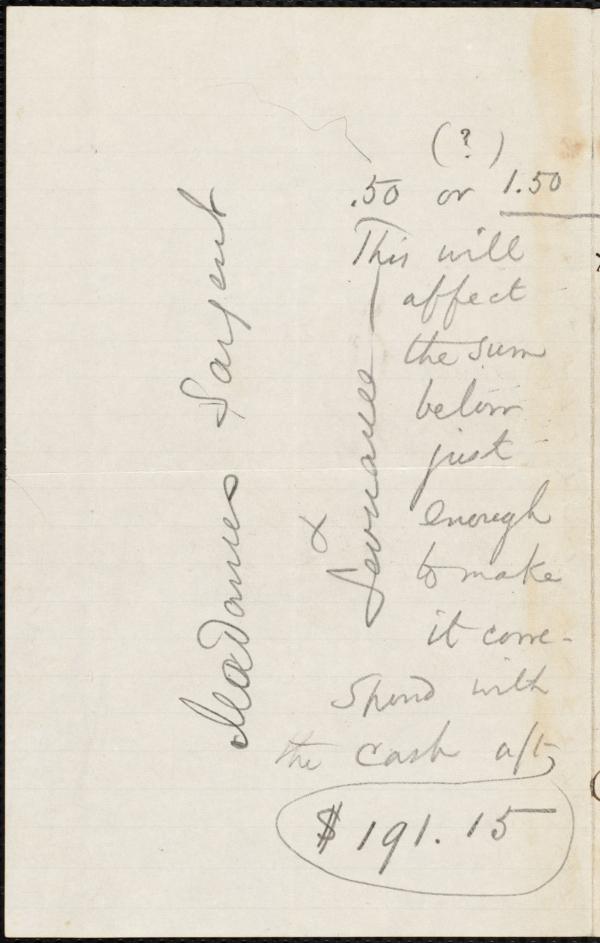 (?)
.50 or 1.50
This will
affect
the sum
below
just
enough
to make
it corre-
spond with
the cash a/c
$191.15
Mesdames Sargent
&
Severance